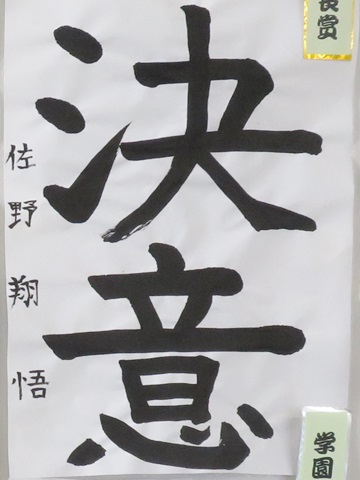 決意
佐野翔悟
長賞
学園